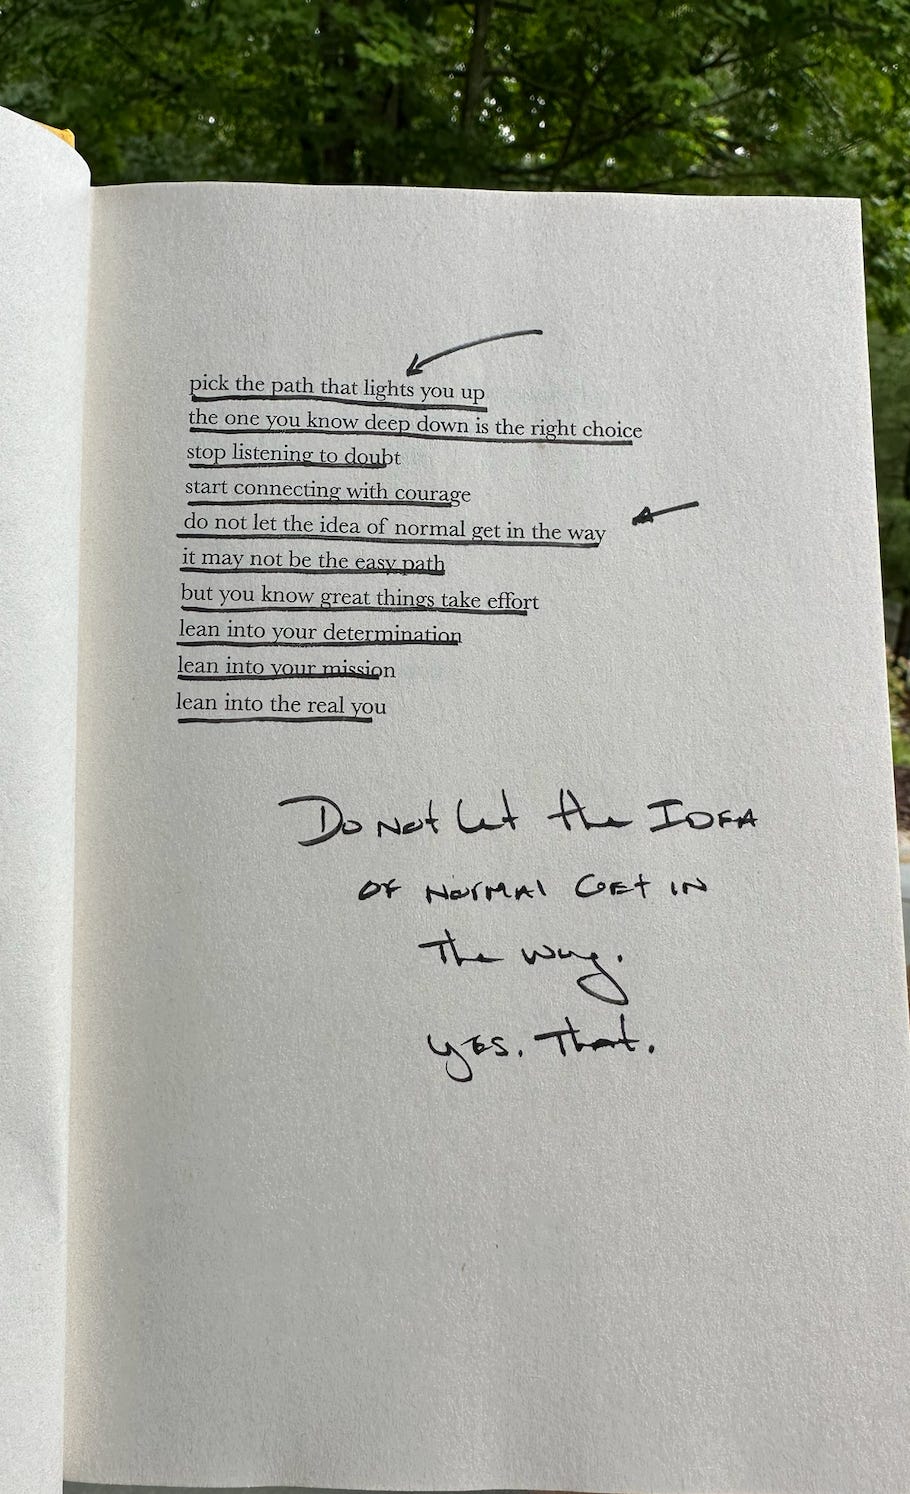 pick the path that lights you up
the one you know deep down is the right choice
stop listening to doubt
start connecting with courage
do not let the idea of normal get in the way
it may not be the easy path
but you know great things take effort
lean into your determination
lean into your mission
lean into the real you
Do Not Let the IDEA
OF NORMAL GET IN
The way.
YES. That.